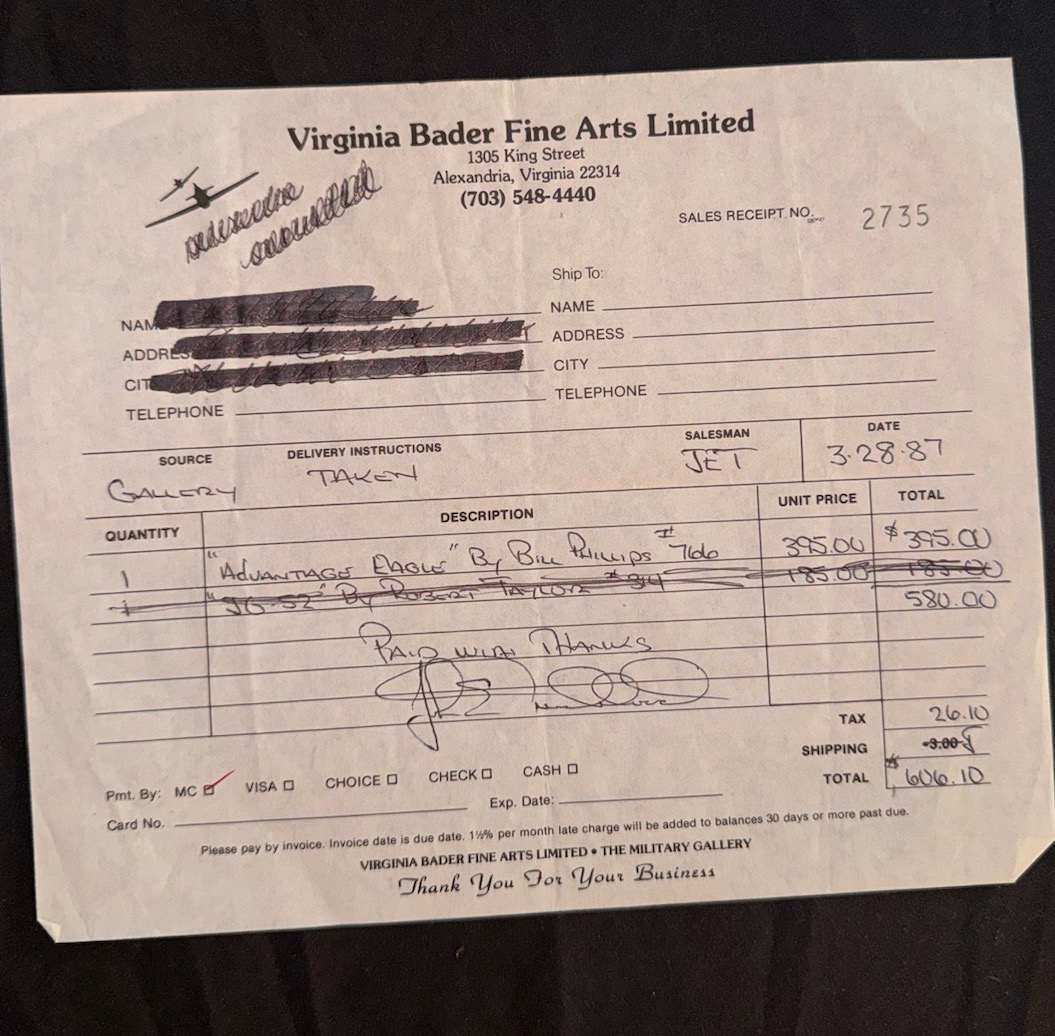 Virginia Bader Fine Arts Limited
1305 King Street
Alexandria, Virginia 22314
(703) 548-4440
SALES RECEIPT NO. 2735
Ship To:
NAM
NAME
ADDRES
ADDRESS
CIT
CITY
TELEPHONE
TELEPHONE
SOURCE DELIVERY INSTRUCTIONS SALESMAN DATE
GALLERY TAKEN JET 3-28-87
QUANTITY DESCRIPTION UNIT PRICE TOTAL
1 "ADVANTAGE EAGLE" By BILL PHILLIPS # 766 395.00 $395.00
1 By ROBERT TAYLOR # 314 185.00 185.00
580.00
PAID WITH THANKS
TAX 26.10
SHIPPING -3.00-
TOTAL $606.10
Pmt. By: MC VISA CHOICE CHECK CASH
Card No. Exp. Date:
Please pay by invoice. Invoice date is due date. 1½% per month late charge will be added to balances 30 days or more past due.
VIRGINIA BADER FINE ARTS LIMITED • THE MILITARY GALLERY
Thank You For Your Business